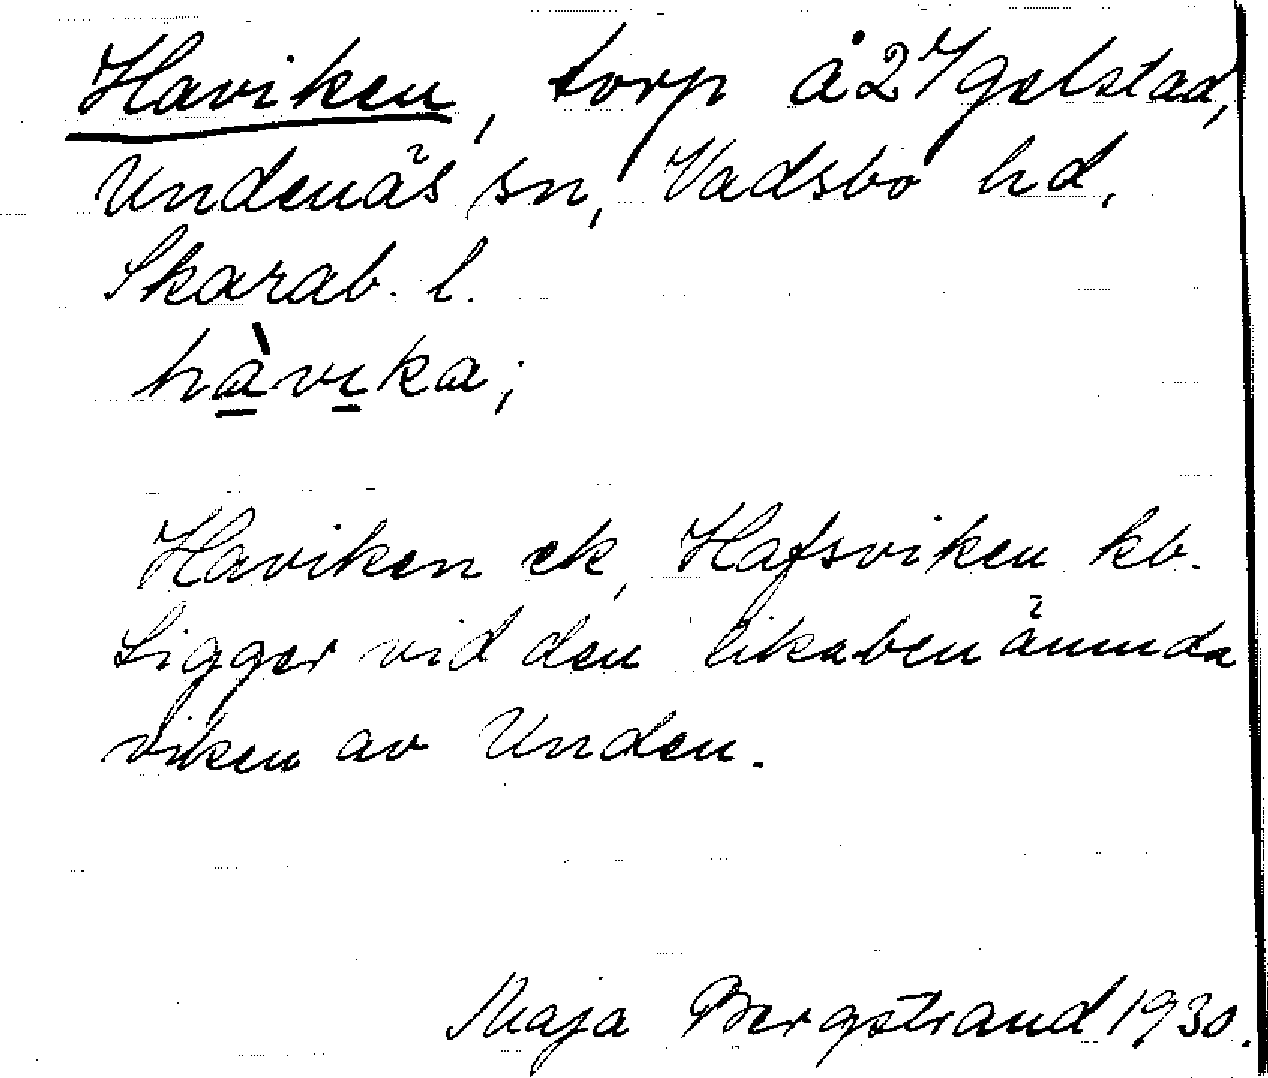 Haviken, torp å 2 Ygelstad,
Undenäs sn, Vadsbo hd,
Skarab. l.
hàvika;
Haviken ek, Hafsviken kb.
Ligger vid den likabenämnda
viken av Unden.
Maja Bergstrand 1930.